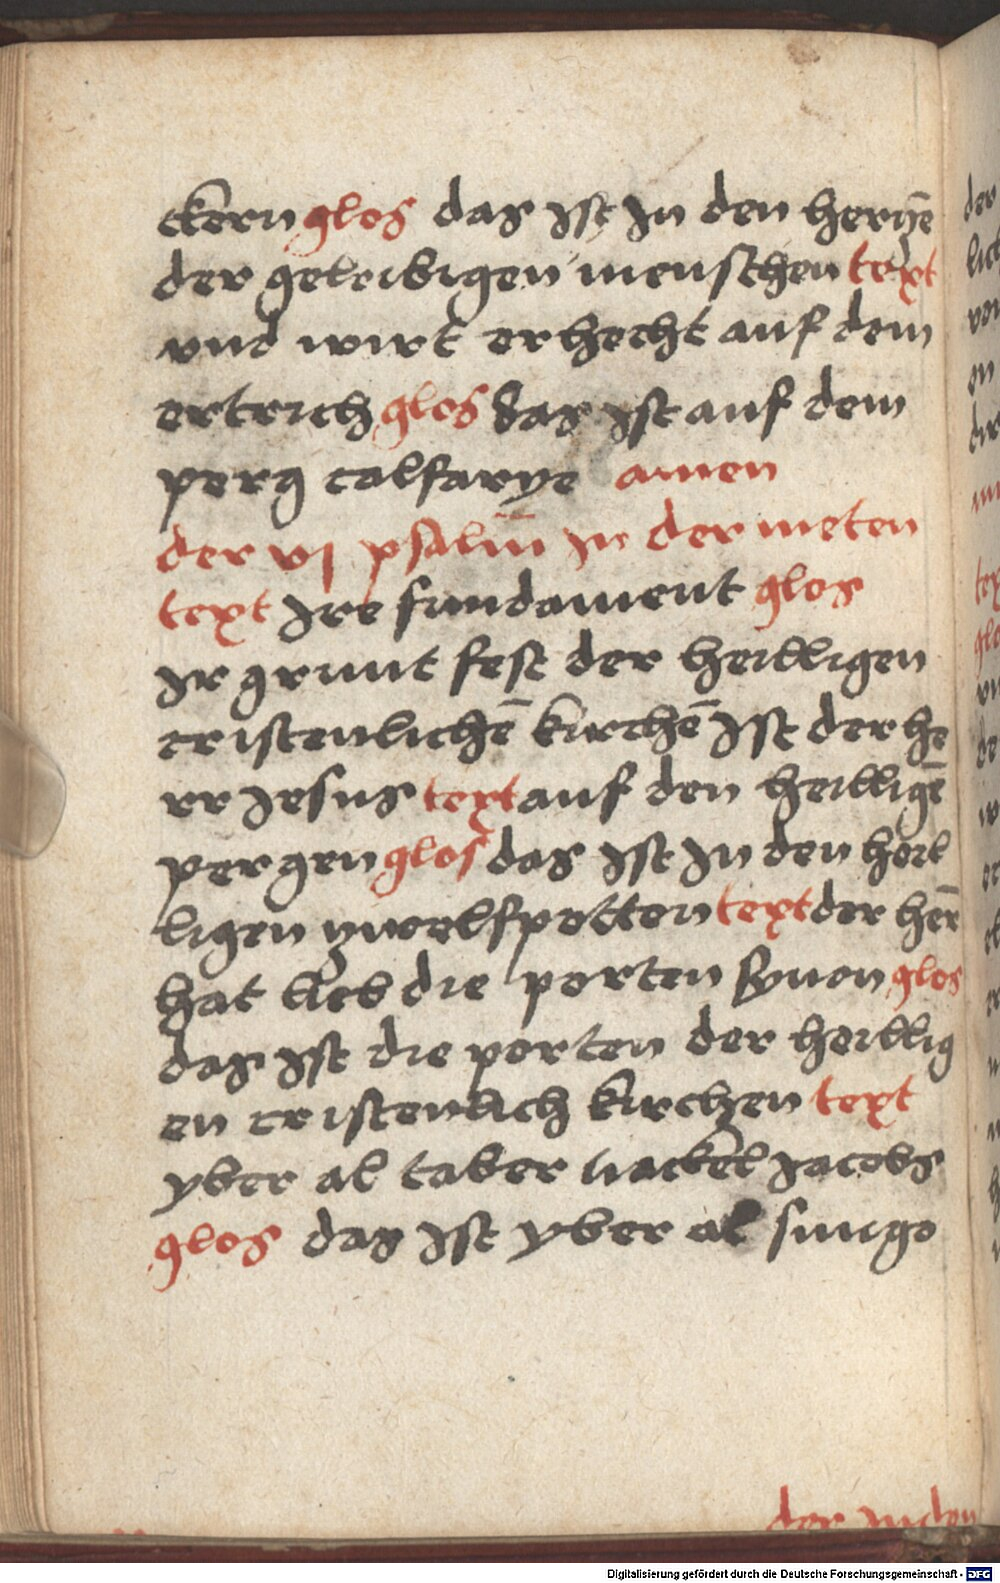 ckern glos das ist in den herczē
der geleibigen menschen text
vnd wirt erhecht auf dem
ertrich glos das ist auf dem
perg calfarye amen
der vj psalm̄ in der meten
text ire fundament glos
ir grunt fest der heilligen
cristenlichē kirchē ist der he
rr iesus text auf den heilligē
pergen glos das ist in den heil
ligen zwelfpotten text der her̄
hat lieb die porten synon glos
das ist die porten der heillig
en cristenlich kirchen text
yber al taber nackel iacobs
glos das ist yber al sinigo
der iuden
Digitalisierung gefördert durch die Deutsche Forschungsgemeinschaft - DFG